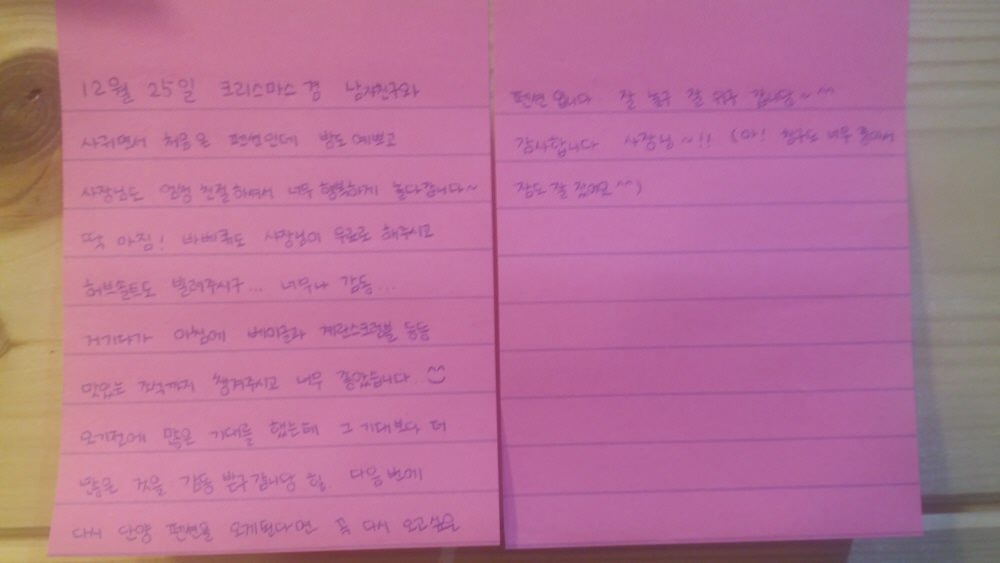 12월 25일 크리스마스 겸 남자친구와
사귀면서 처음 온 펜션인데 방도 예쁘고
사장님도 엄청 친절하셔서 너무 행복하게 놀다갑니다~
딱 아침! 바베큐도 사장님이 무료로 해주시고
허브솔트도 빌려주시구... 너무나 감동...
거기다가 아침에 베이글과 계란스크럼블 등등
맛있는 조식까지 챙겨주시고 너무 좋았습니다
오기전에 많은 기대를 했는데 그 기대보다 더
많은 것을 감동 받구 갑니당 힛 다음번에
다시 단양 펜션을 오게된다면 꼭 다시 오고싶은
펜션 입니다 잘 놀구 잘 쉬구 갑니당~^^
감사합니다 사장님~!! (아! 침구도 너무 좋아서
잠도 잘 잤어요^^)